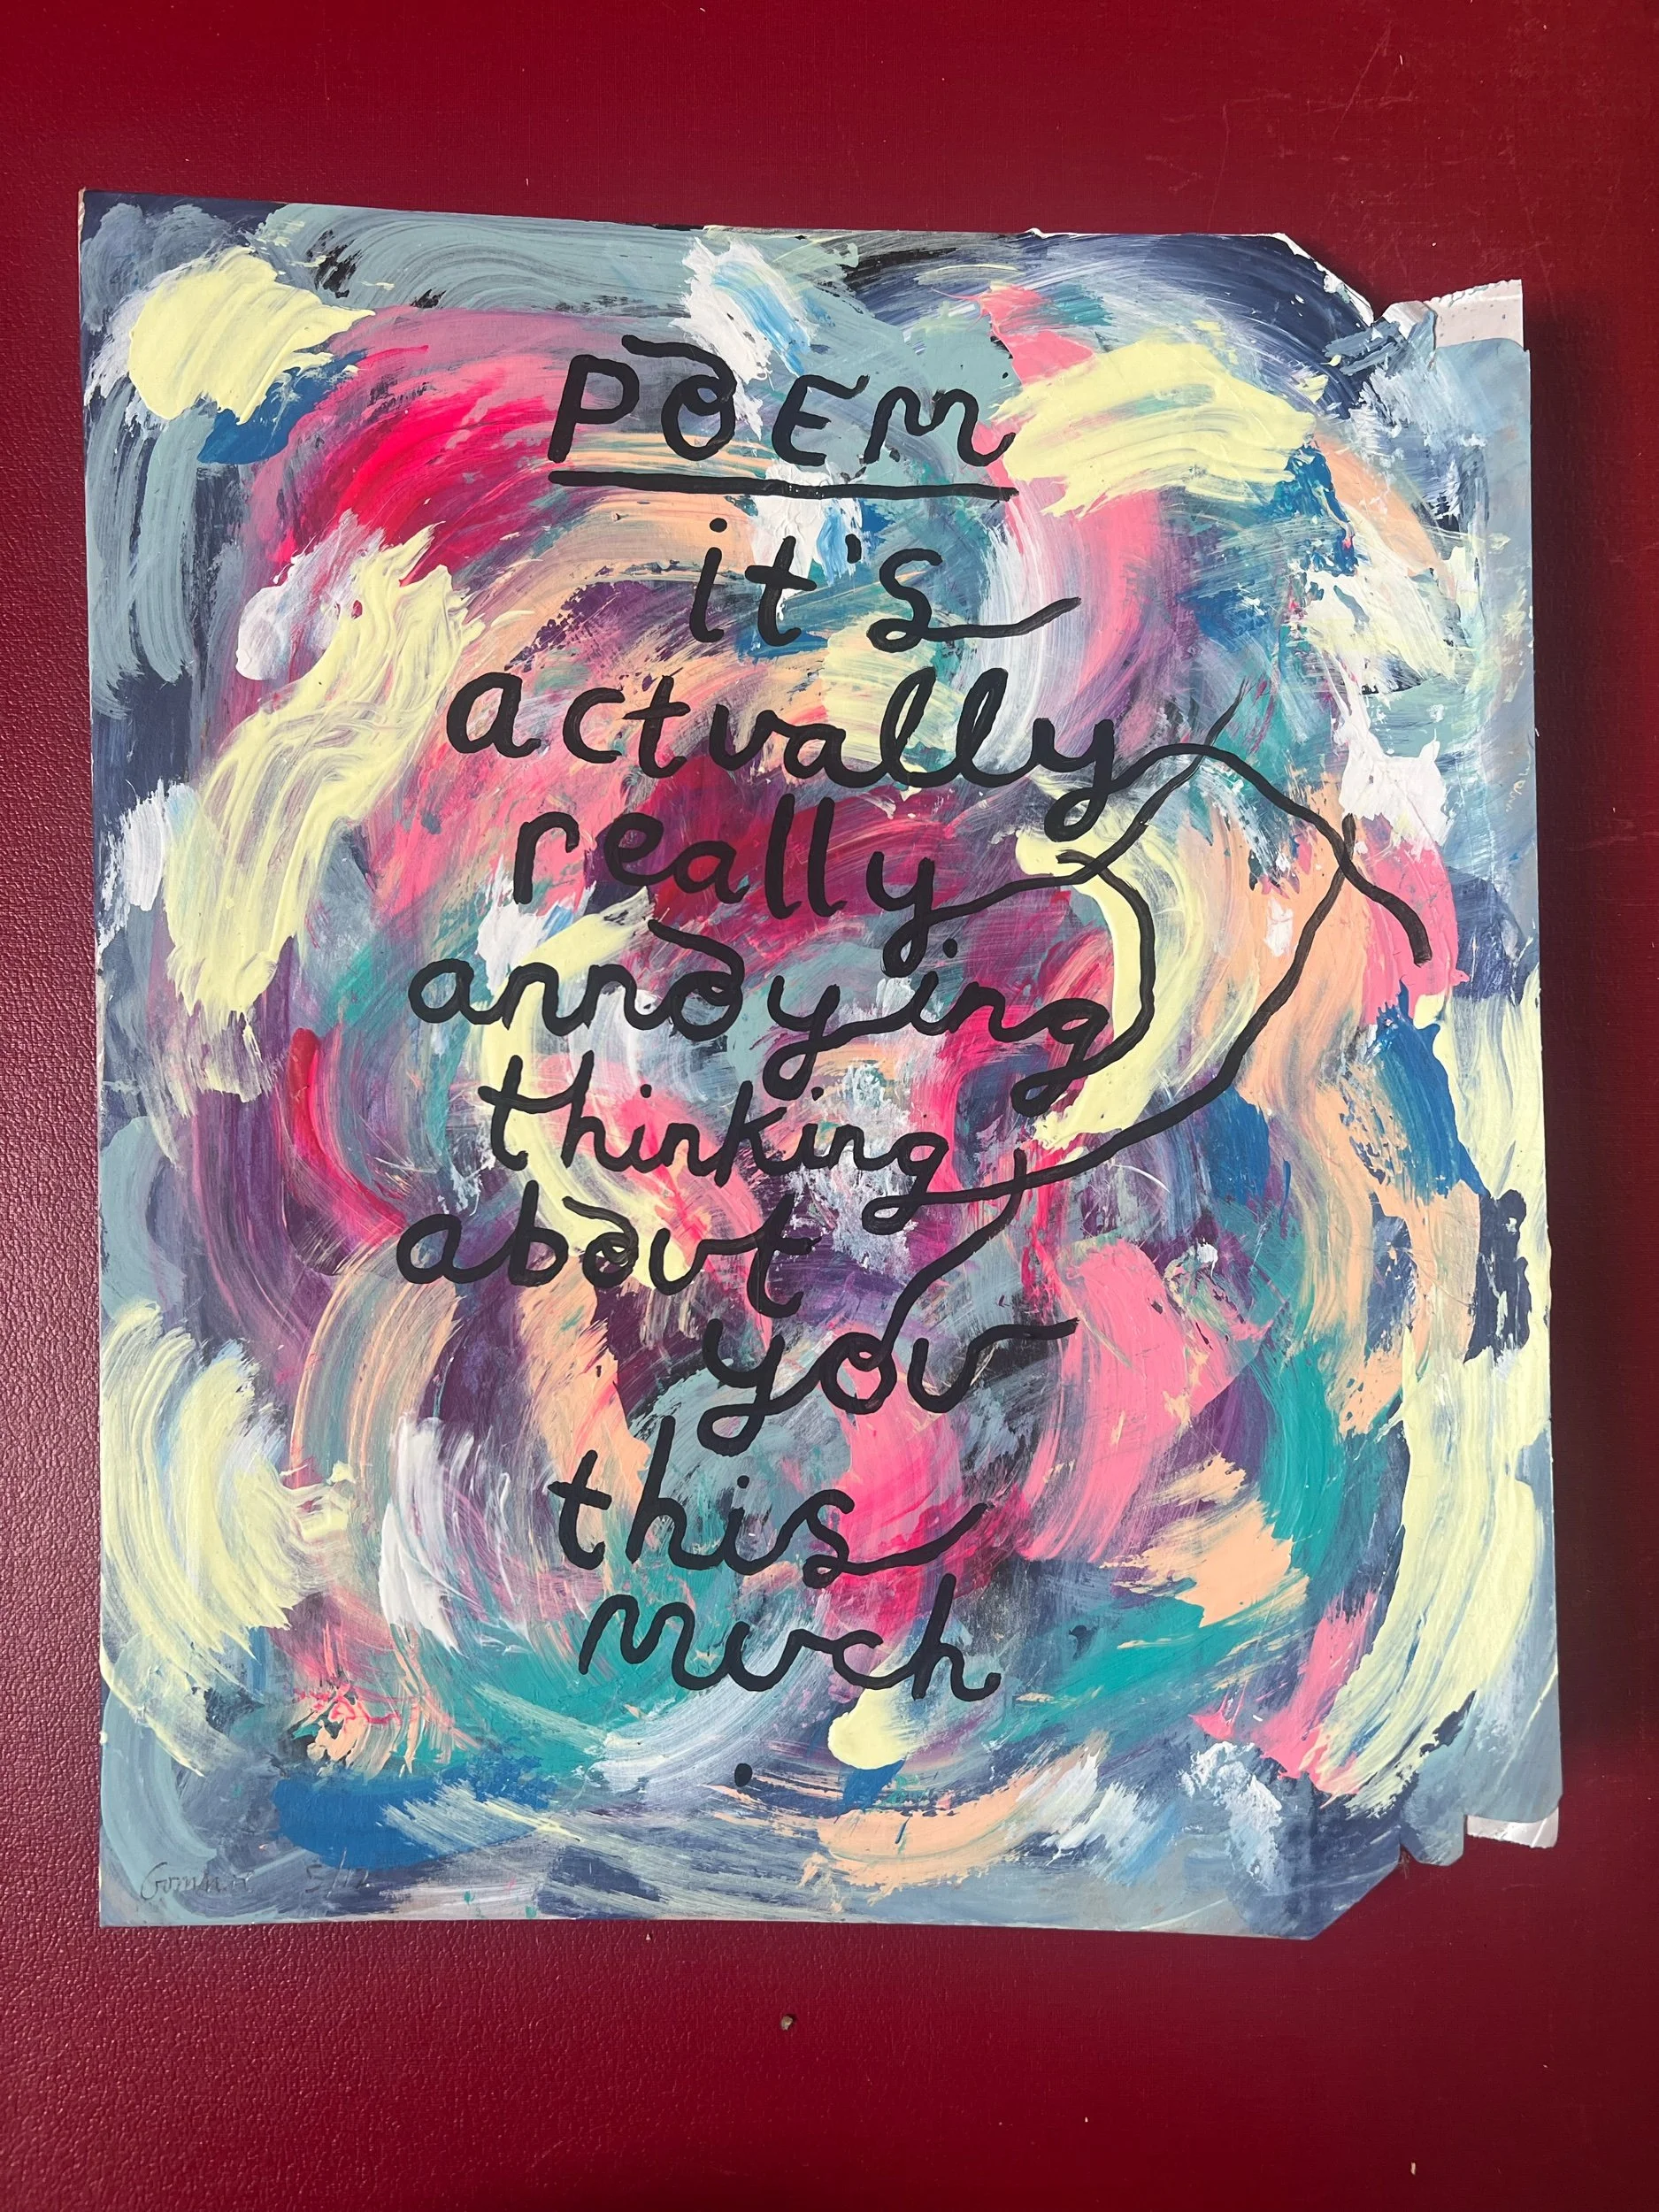 POEM
it's
actually
really
annoying
thinking
about
you
this
much
.